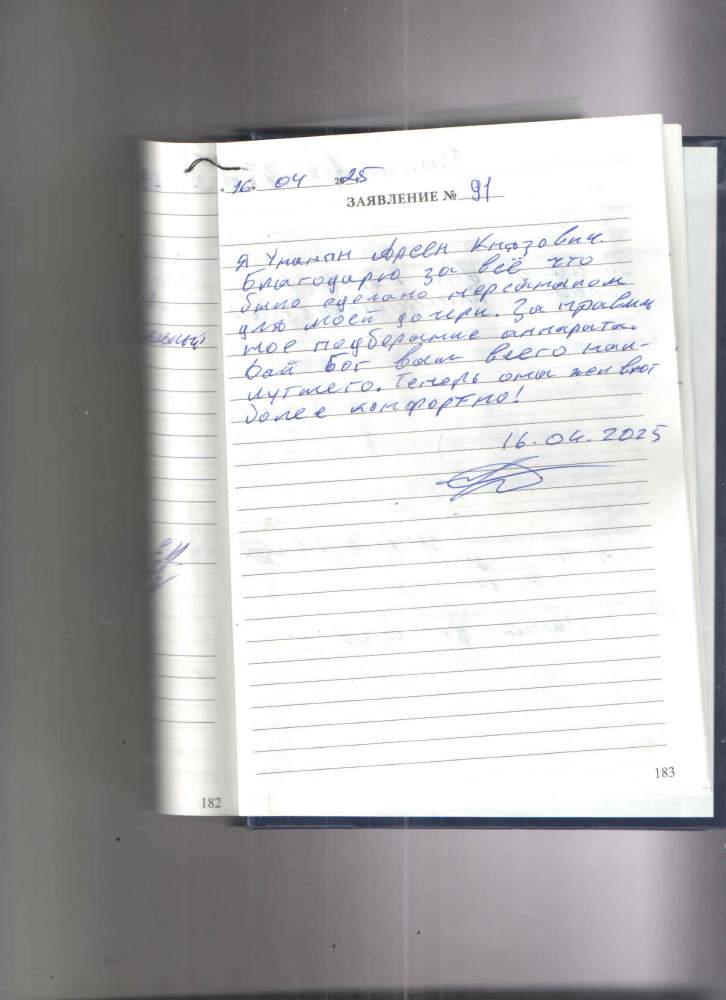 16 04 2025
ЗАЯВЛЕНИЕ № 91
Я Унанян Арсен Князович.
Благодарю за всё что
было сделано персоналом
для моей дочери. За правиль
ное подборание аппарата.
Дай Бог вам всего наи-
лутшего. Теперь она живёт
более комфортно!
16.04.2025
182
183